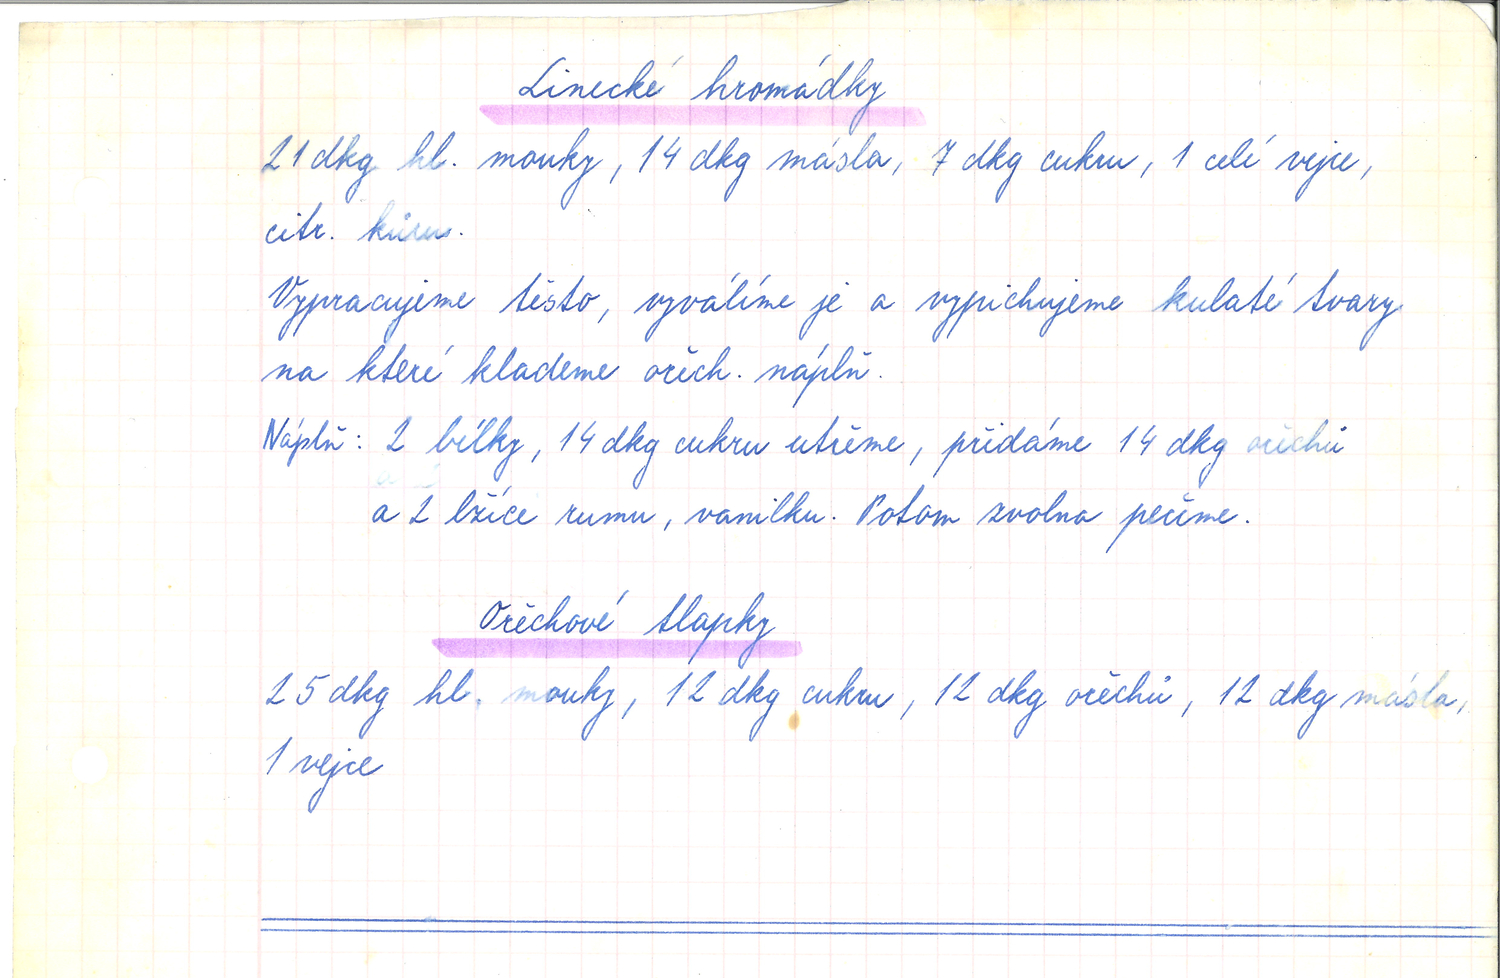 Linecké hromádky
21 dkg hl. mouky, 14 dkg másla, 7 dkg cukru, 1 celé vejce,
citr. kůru.
Vypracujeme těsto, vyválíme je a vypichujeme kulaté tvary
na které klademe ořech. náplň.
Náplň: 2 bílky, 14 dkg cukru utřeme, přidáme 14 dkg ořechů
a 2 lžíce rumu, vanilku. Potom zvolna pečeme.
Ořechové tlapky
25 dkg hl. mouky, 12 dkg cukru, 12 dkg ořechů, 12 dkg másla,
1 vejce